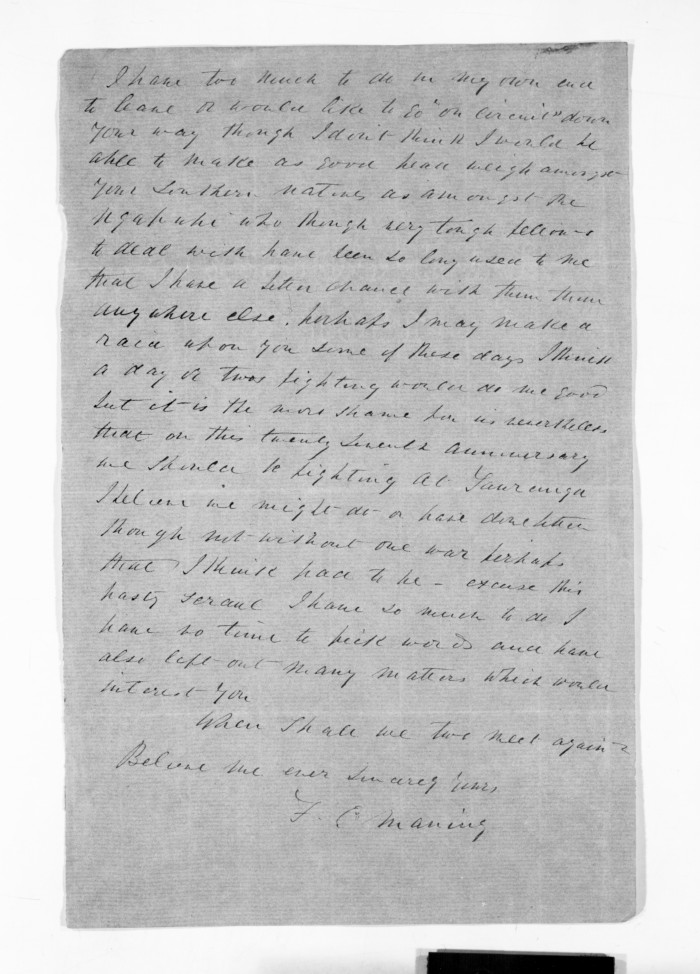 I have too much to do in my own end
to leave or would like to go "on Circuit" down
your way though I dont think I would be
able to make as good head weigh amongst
your Southern natives as amongst the
Ngapuhi who though very tough fellows
to deal with have been so long used to me
that I have a better chance with them than
anywhere else. perhaps I may make a
raid upon you some of these days I think
a day or two's fighting would do me good
but it is the more shame for us nevertheless
that on this twenty seventh anniversary
we should be fighting at Tauranga
I believe we might do or have done better
though not without one war perhaps
that I think had to be - excuse this
hasty scrawl I have so much to do I
have no time to pick words and have
also left out many matters which would
interest you
When shall we two meet again -
Believe me ever sincerely yours
F. E Maning